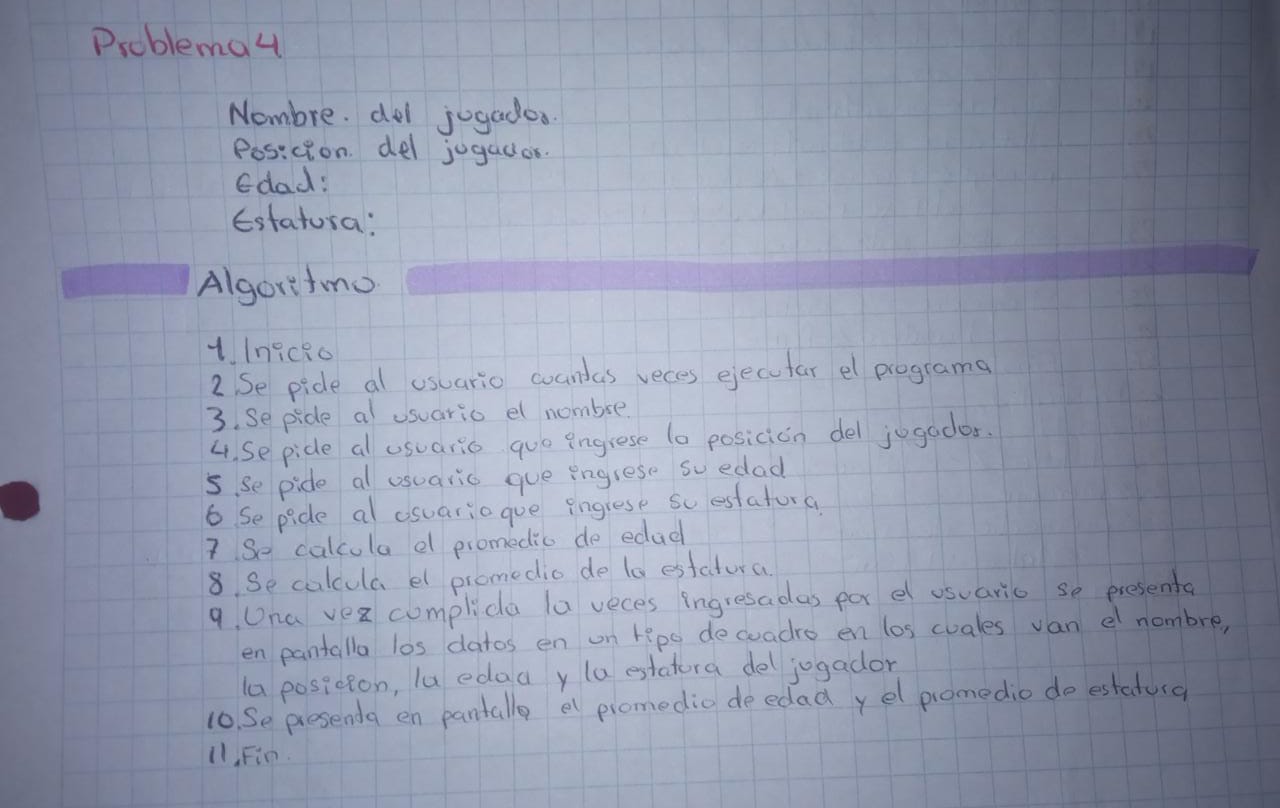 Problema 4
Nombre. del jugador.
Posicion. del jugador.
Edad:
Estatura:
Algoritmo.
1. Inicio
2 Se pide al usuario cuantas veces ejecutar el programa
3. Se pide al usuario el nombre.
4. Se pide al usuario que ingrese la posición del jugador.
5. Se pide al usuario que ingrese su edad
6 Se pide al usuario que ingrese su estatura.
7 Se calcula el promedio de edad
8. Se calcula el promedio de la estatura.
9. Una vez complida la veces ingresadas por el usuario se presenta
en pantalla los datos en un tipo de cuadro en los cuales van el nombre,
la posicion, la edad y la estatura del jugador
10. Se presenta en pantalla el promedio de edad y el promedio de estatura
11. Fin.